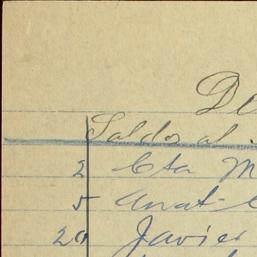 De
Saldos al
2 Cta M
5 Anat
20 Javier